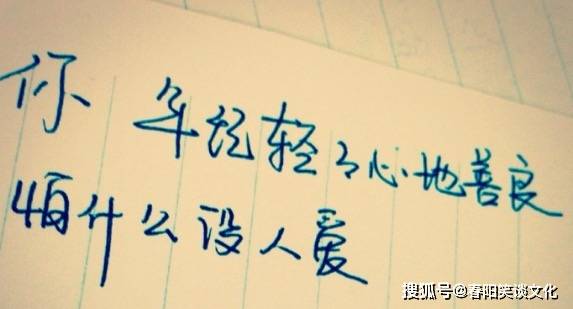 你 年纪轻轻心地善良
怕什么没人爱
搜狐号@春阳笑谈文化